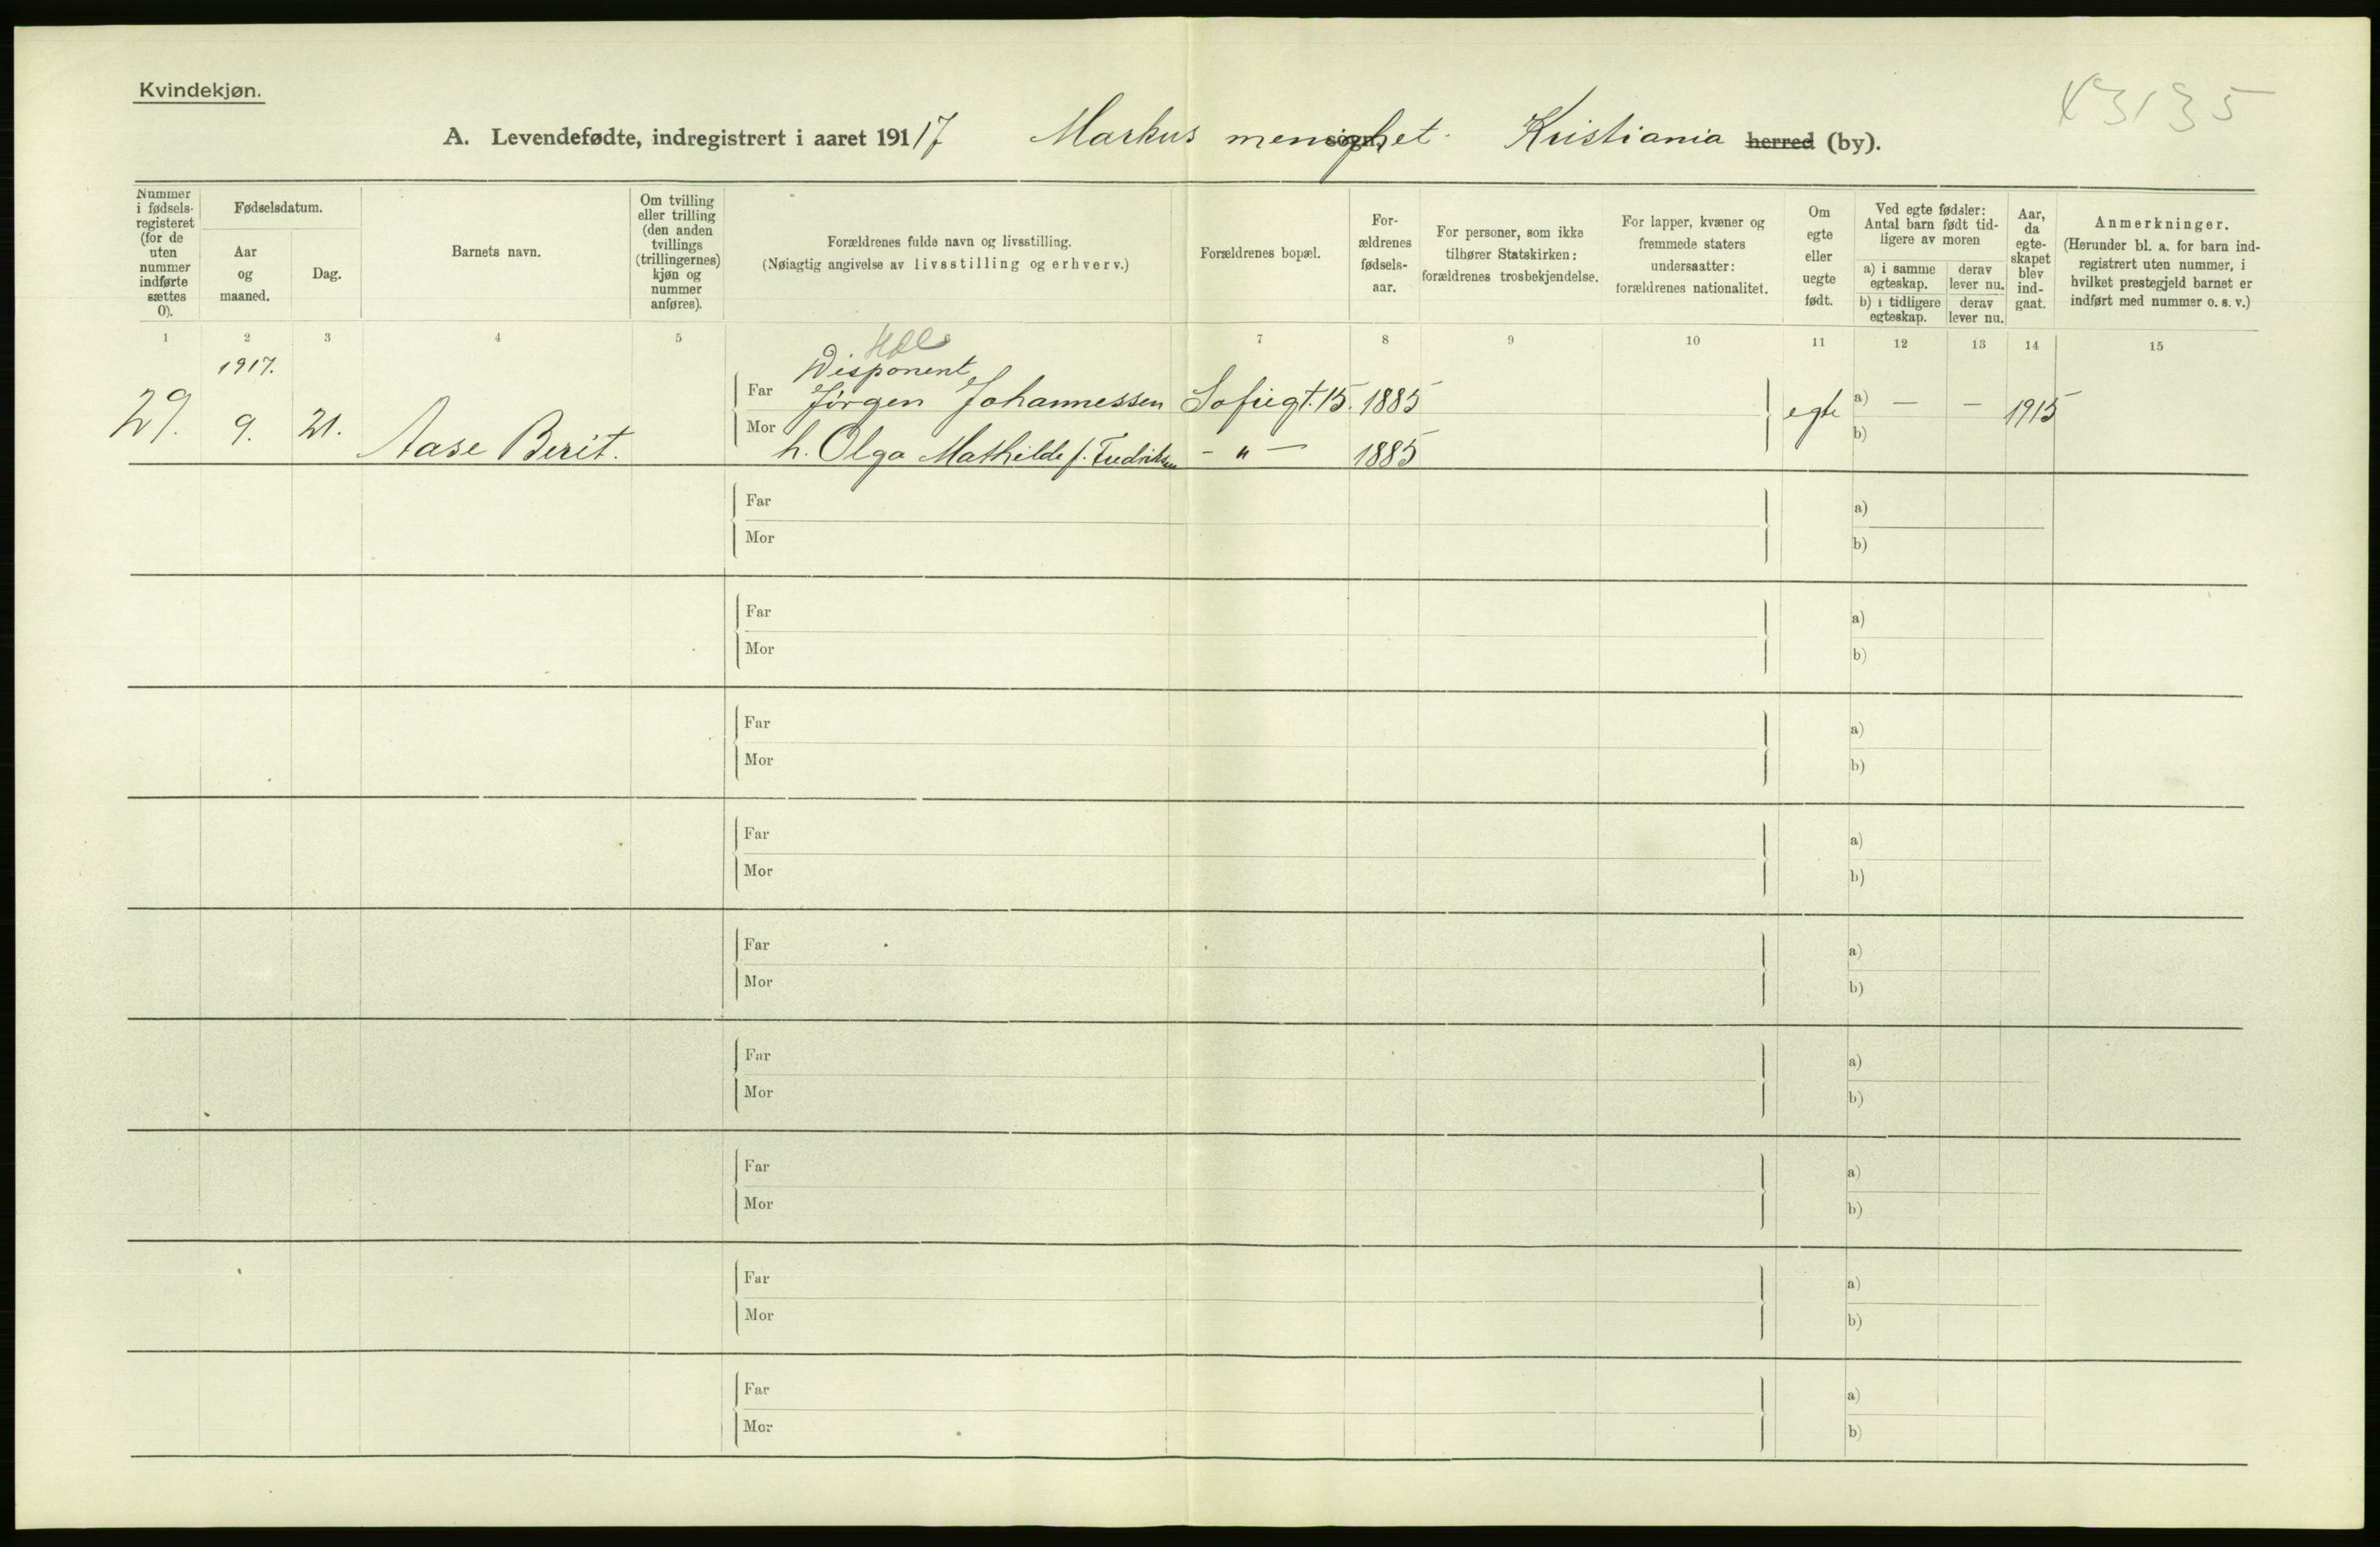 Kvindekjøn.
A. Levendefødte, indregistrert i aaret 19117 Markus menighet. Kristiania herred (by).
Nummer i fødsels-registeret (for de uten nummer indførte sættes 0).
Fødselsdatum.
Aar og maaned.
Dag.
Barnets navn.
Om tvilling eller trilling (den anden tvillings (trillingernes) kjøn og nummer anføres).
Forældrenes fulde navn og livsstilling.
(Nøiagtig angivelse av livsstilling og erhverv.)
Forældrenes bopæl.
For-ældrenes fødsels-aar.
For personer, som ikke tilhører Statskirken: forældrenes trosbekjendelse.
For lapper, kvæner og fremmede staters undersaatter: forældrenes nationalitet.
Om egte eller uegte født.
Ved egte fødsler: Antal barn født tid-ligere av moren
a) i samme egteskap.
derav lever nu.
b) i tidligere egteskap.
derav lever nu.
Aar, da egte-skapet blev ind-gaat.
Anmerkninger.
(Herunder bl. a. for barn ind-registrert uten nummer, i hvilket prestegjeld barnet er indført med nummer o. s. v.)
1 2 3 4 5 7 8 9 10 11 12 13 14 15
1917.
Disponent
29. 9. 21. Aase Berit.
Far Jörgen Johannessen Sofiegt. 15. 1885 egte a) — — 1915
Mor h. Olga Mathilde f. Fredriksen - " - 1885 b)
Far a)
Mor b)
Far a)
Mor b)
Far a)
Mor b)
Far a)
Mor b)
Far a)
Mor b)
Far a)
Mor b)
Far a)
Mor b)
Far a)
Mor b)
Far a)
Mor b)